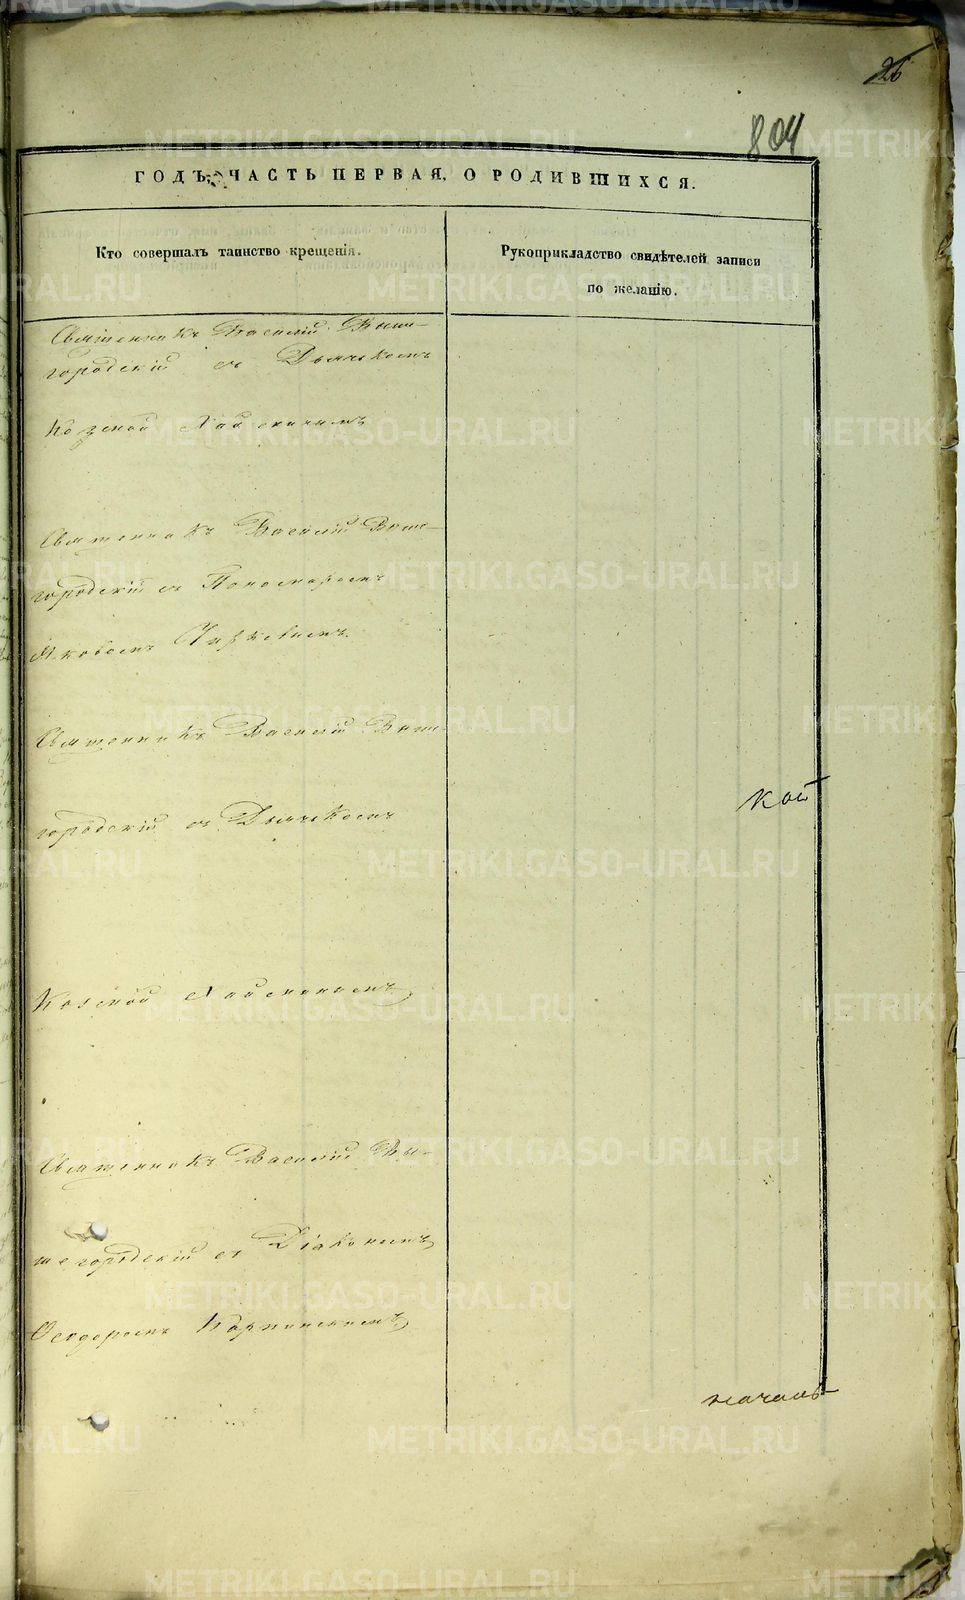 26
804
ГОДЪ, ЧАСТЬ ПЕРВАЯ, О РОДИВШИХСЯ.
Кто совершалъ таинство крещенія.
Рукоприкладство свидѣтелей записи
по желанію.
Священникъ Василій Выше-
городскій съ Дьячкомъ
Козмой
Священникъ Василій Выше-
городскій съ Пономаремъ
Яковомъ
Священникъ Василій Выше-
городскій съ Дьячкомъ
Козмой
Священникъ Василій Вы-
шегородскій съ Діакономъ
Ѳеодоромъ Карпинскимъ
METRIKI.GASO-URAL.RU